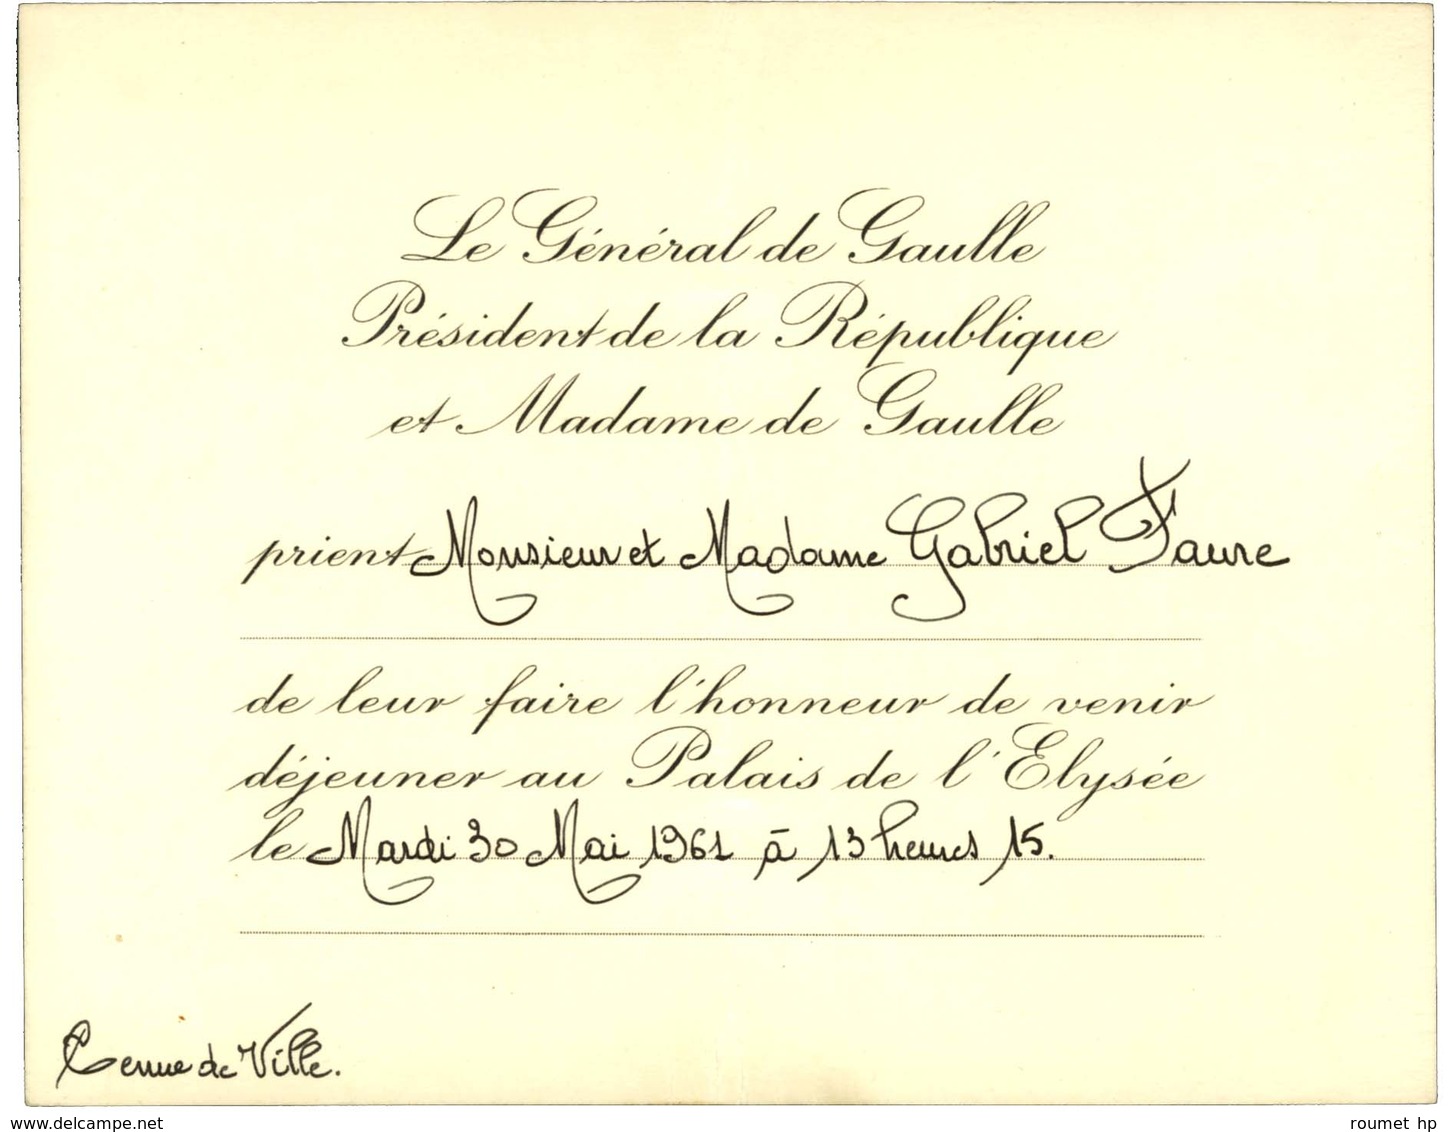 Le Général de Gaulle
Président de la République
et Madame de Gaulle
prient Monsieur et Madame Gabriel Faure
de leur faire l'honneur de venir
déjeuner au Palais de l'Elysée
le Mardi 30 Mai 1961 à 13 heures 15.
Tenue de Ville.
www.delcampe.net
roumet hp